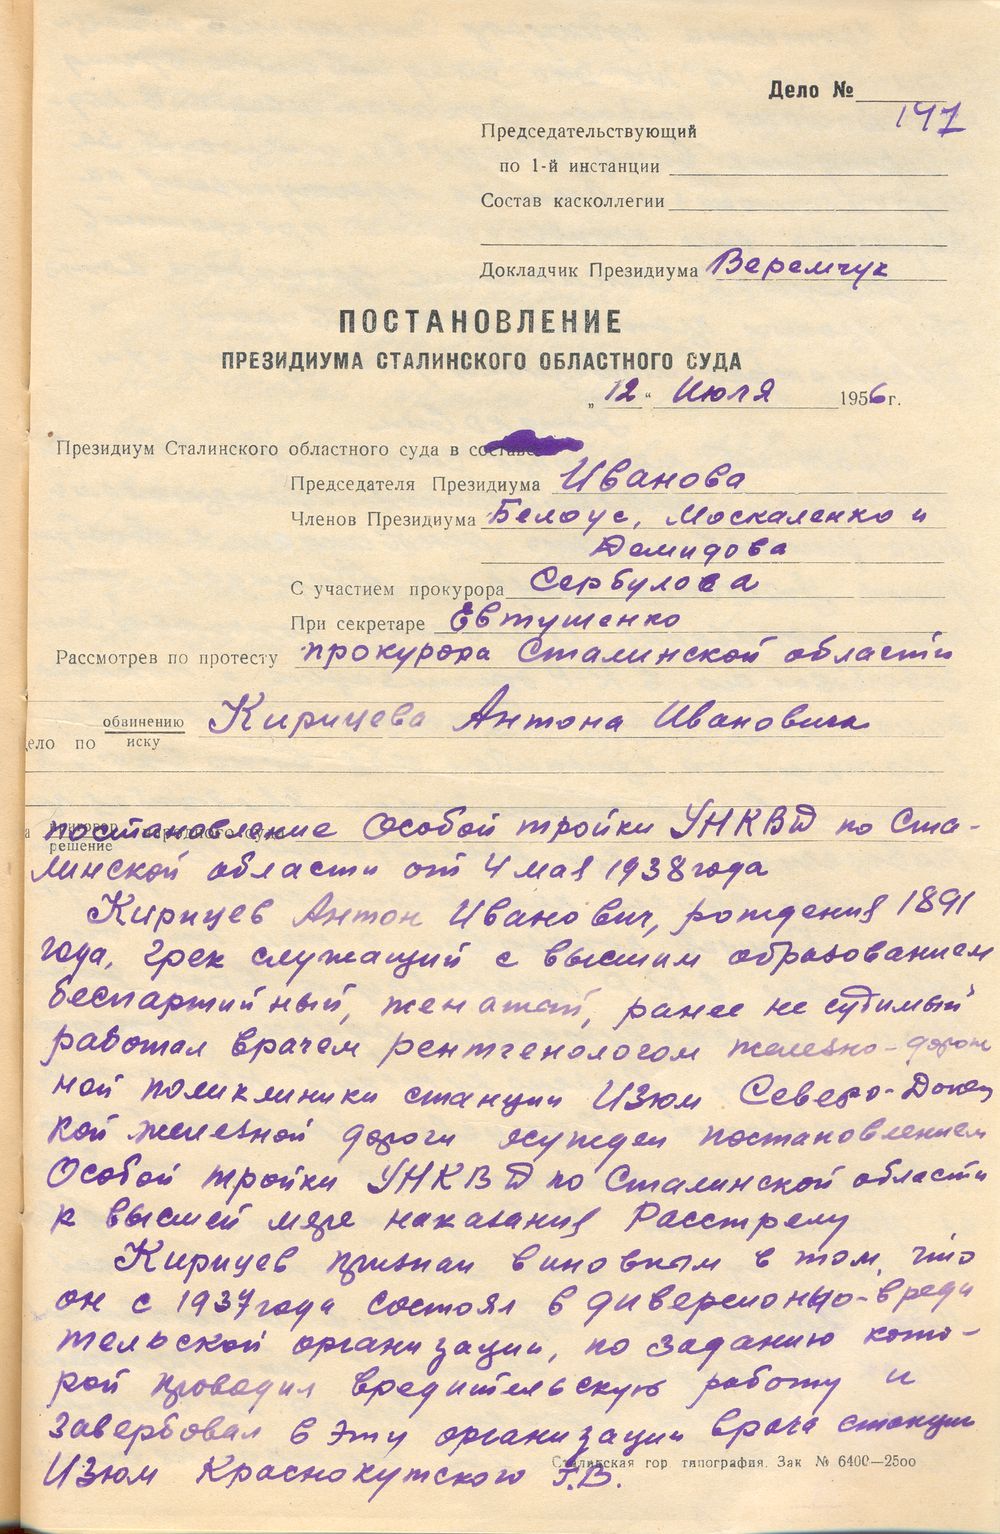 Дело №
147
Председательствующий
по 1-й инстанции
Состав касколлегии
Докладчик Президиума Веремчук
ПОСТАНОВЛЕНИЕ
ПРЕЗИДИУМА СТАЛИНСКОГО ОБЛАСТНОГО СУДА
„12“ Июля 1956 г.
Президиум Сталинского областного суда в составе
Председателя Президиума Иванова
Членов Президиума Белоус, Москаленко и
Демидова
С участием прокурора Сербулова
При секретаре Евтушенко
Рассмотрев по протесту прокурора Сталинской области
обвинению Кирицева Антона Ивановича
дело по иску
постановление Особой тройки УНКВД по Ста-
решение
линской области от 4 мая 1938 года
Кирицев Антон Иванович, рождения 1891
года, грек служащий с высшим образованием
беспартийный, женатый, ранее не судимый
работал врачем рентгенологом железно-дорож
ной поликлиники станции Изюм Северо-Донец
кой железной дороги осужден постановлением
Особой тройки УНКВД по Сталинской области
к высшей мере наказания Расстрелу
Кирицев признан виновным в том, что
он с 1937 года состоял в диверсионно-вреди
тельской организации, по заданию кото-
рой проводил вредительскую работу и
завербовал в эту организации врача станции
Изюм Краснокутского Г.В.
Сталинская гор типография. Зак № 6400—2500